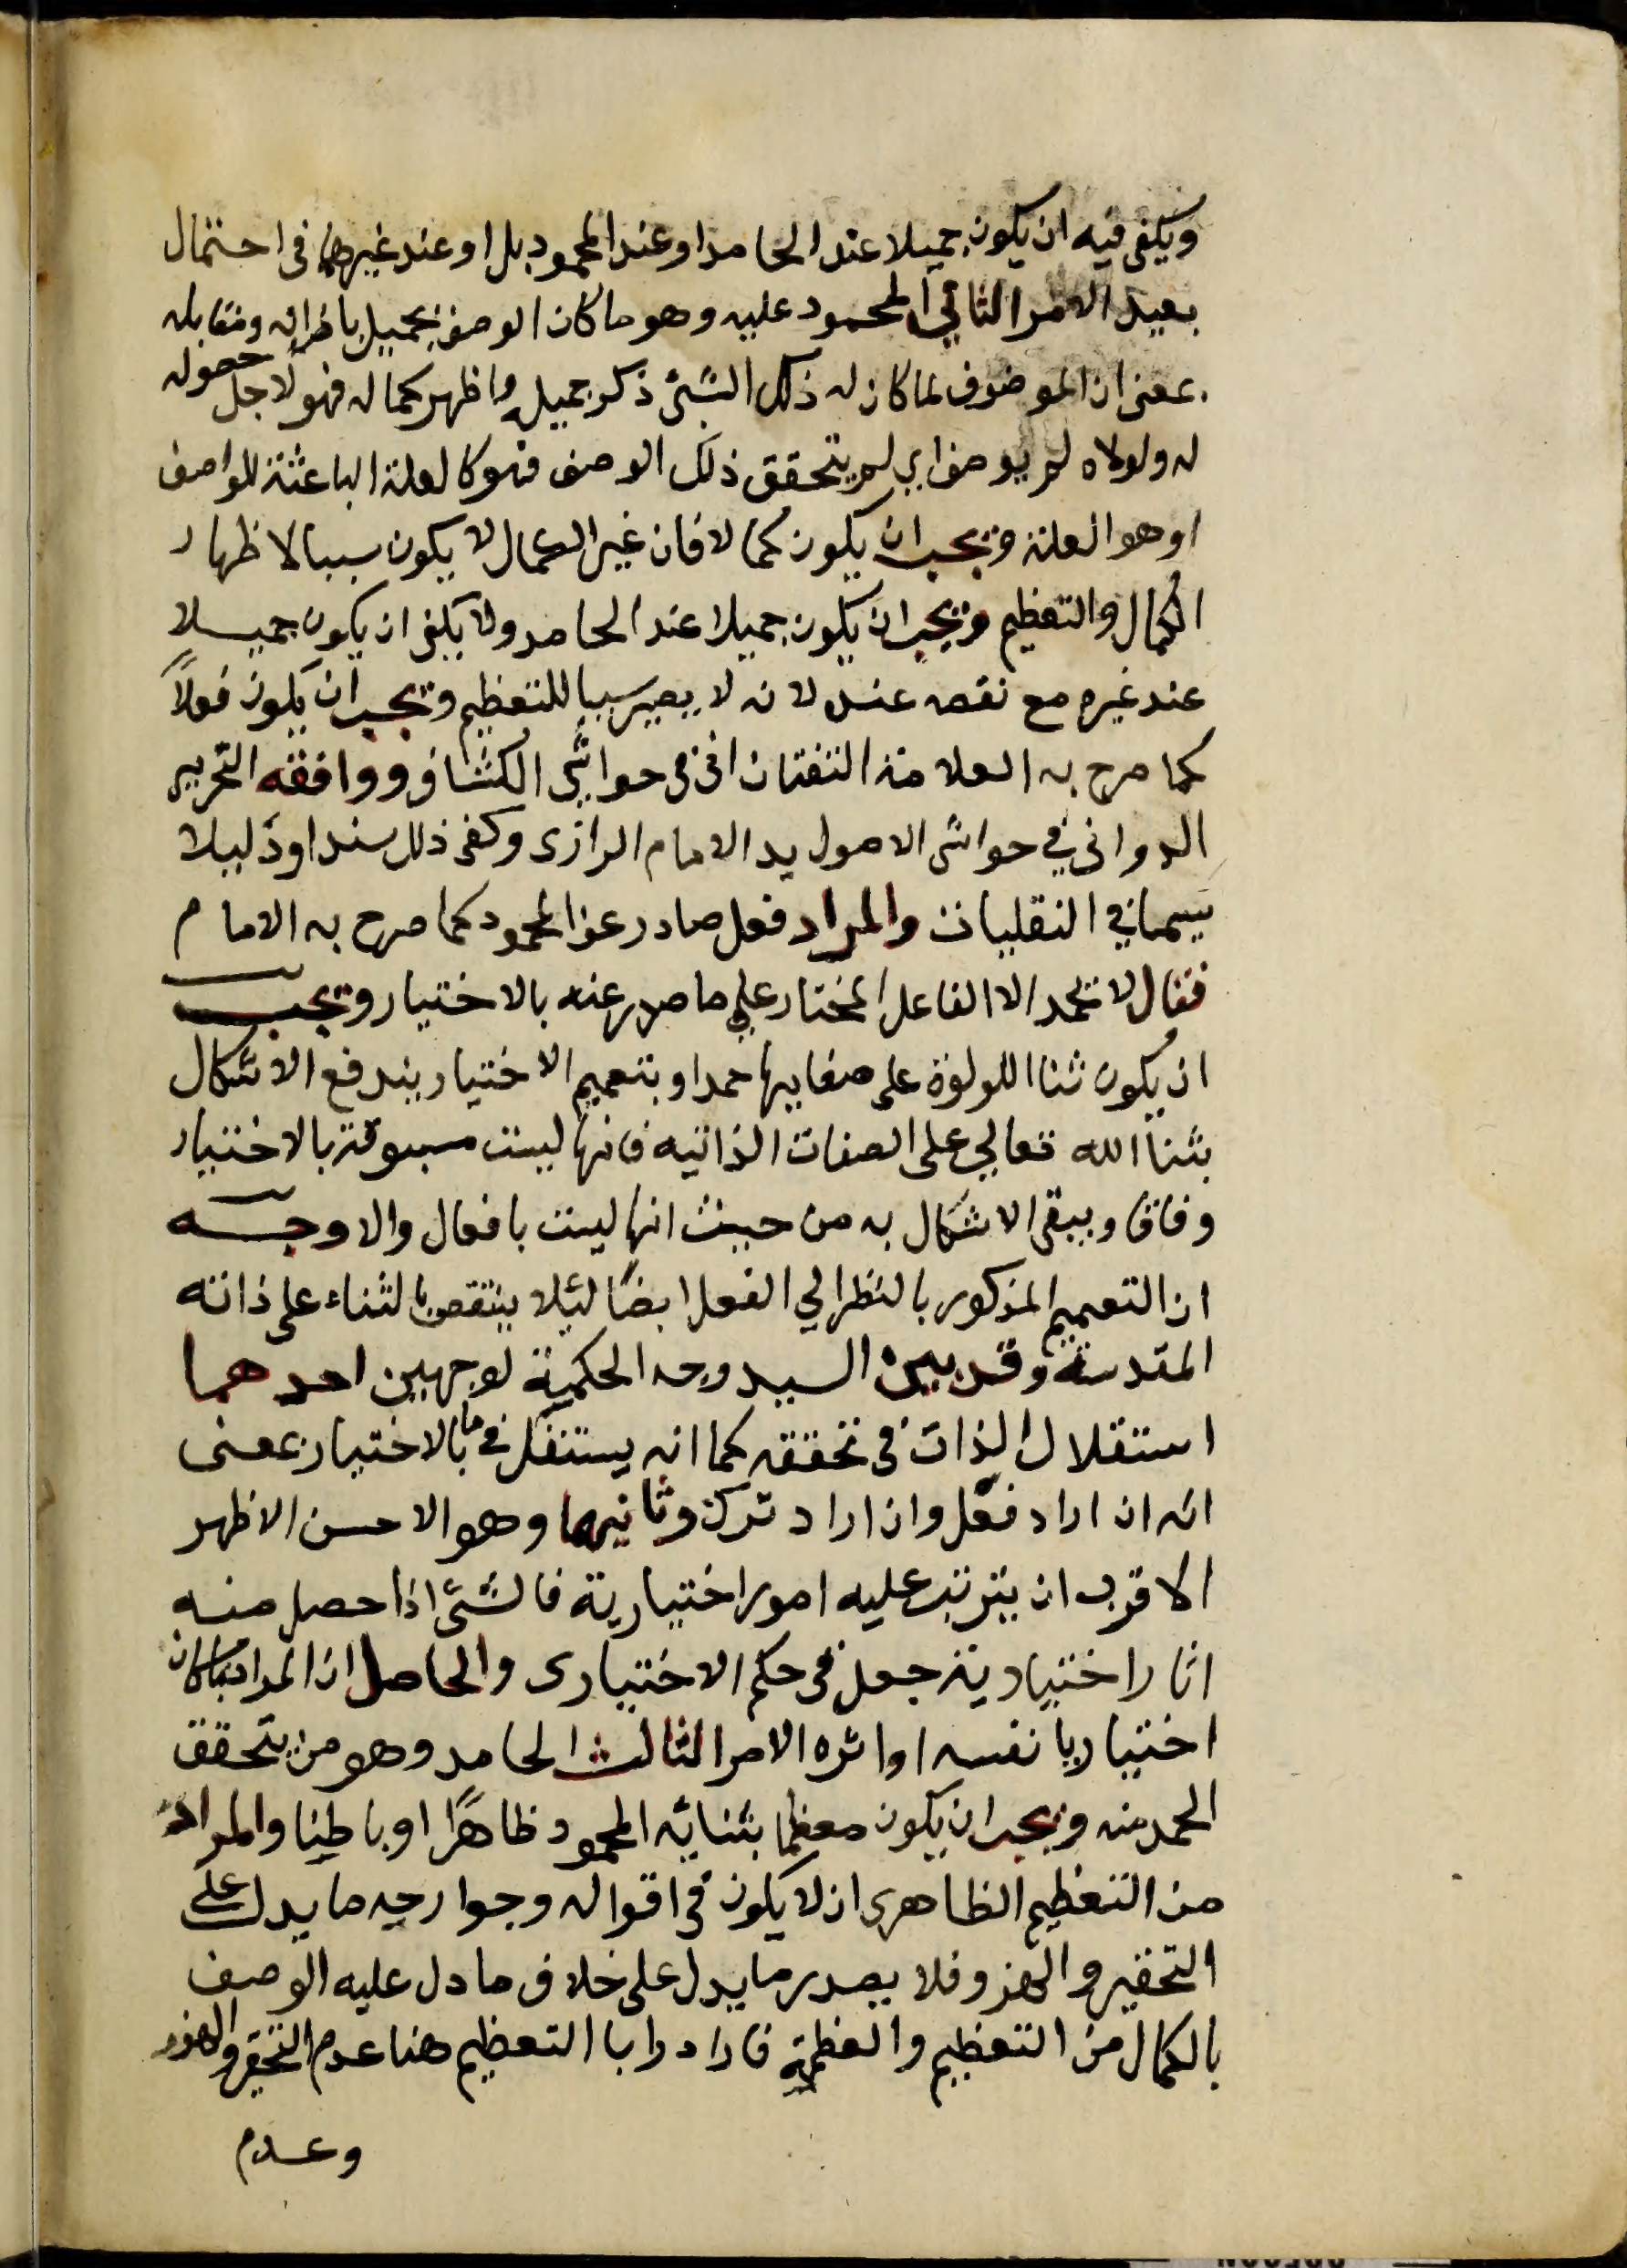 ويكفي فيه ان يكون جميلا عند الحامد او عند المحمود بل او عند غيرهما في احتمال
بعيد الامر الثاني المحمود عليه وهو ما كان الوصف بجميل بازائه ومقابله
بمعنى ان الموصوف لما كان له ذلك الشئ ذكر جميله واظهر كماله فهو لاجل حصوله
له ولولاه لم يوصف اي لم يتحقق ذلك الوصف فهو كالعلة الباعثة للواصف
او هو العلة ويجب ان يكون كمالا فان غير الكمال لا يكون سببا لاظهار
الكمال والتعظيم ويجب ان يكون جميلا عند الحامد ولا يكفي ان يكون جميلا
عند غيره مع نقصه عنده لانه لا يصير سببا للتعظيم ويجب ان يكون فعلاً
كما صرح به العلامة التفتازاني في حواشي الكشاف ووافقه النحرير
الدواني في حواشي الاصول يد الامام الرازي وكفى ذلك سندا ودليلا
سيما في النقليات والمراد فعل صادر عن المحمود كما صرح به الامام
فقال لا يحمد الا الفاعل المختار علي ما صدر عنه بالاختيار ويجب
ان يكون ثنا اللولوة على صفايها حمدا وبتعميم الاختيار يندفع الاشكال
بثنا الله تعالي على الصفات الذاتيه فانها ليست مسبوقة بالاختيار
وفاقا ويبقى الاشكال به من حيث انها ليست بافعال والاوجه
ان التعميم المذكور بالنظر الي الفعل ايضًا لئلا ينتقض بالثناء على ذاته
المقدسة وقد بين السيد وجه الحكمية لوجهين احدهما
استقلال الذات في تحققه كما انه يستقل في ما بالاختيار بمعنى
انه ان اراد فعل وان اراد ترك وثانيهما وهو الاحسن الاظهر
الاقرب ان يترتب عليه امور اختيارية فالشئ اذا حصل منه
اثار اختيارية جعل في حكم الاختياري والحاصل ان المراد ما كان
اختياريا نفسه او اثره الامر الثالث الحامد وهو من يتحقق
الحمد منه ويجب ان يكون معظما بثنائه المحمود ظاهرًا او باطنا والمراد
من التعظيم الظاهري ان لا يكون في اقواله وجوارحه ما يدل على
التحقير والهزو فلا يصدر ما يدل على خلاف ما دل عليه الوصف
بالكمال من التعظيم والعظمة فاراد وا با التعظيم هنا عدم التحقير والهزو
وعدم